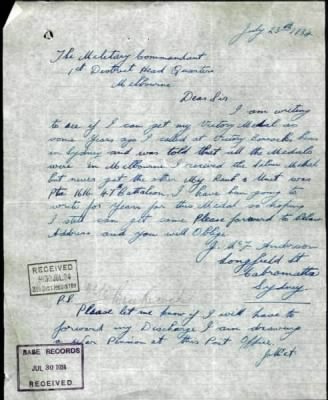 July 23rd 1934
The Military Commandant
1st District Head Quarters
Melbourne
Dear Sir
I am writing
to see if I can get my Victory Medal in
some Years ago I called at Victory Barracks here
in Sydney and was told that all the Medals
were in Melbourne I received the Silver Medal
but never got the other My Rank & Unit was
Pte 1616 47th Battalion. I have been going to
write for Years for this Medal so hoping
I still can get same Please forward to Below
Address and you will Oblige
Anderson
Longfield St
Cabramatta
Sydney
RECEIVED
BASE RECORDS
JUL 30 1934
RECEIVED
P.S.
Please let me know if I will have to
forward my Discharge I am drawing
a War Pension at this Post Office.